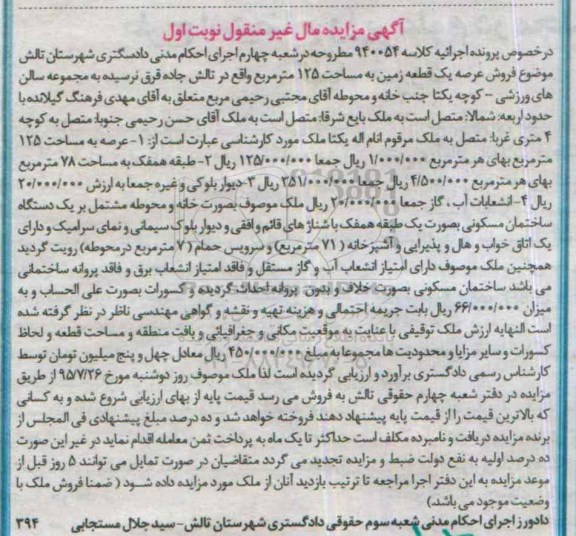 آگهی مزایده مال غیر منقول نوبت اول
درخصوص پرونده اجرائیه کلاسه ۹۴۰۰۵۴ مطروحه در شعبه چهارم اجرای احکام مدنی دادسگتری شهرستان تالش
موضوع فروش عرصه یک قطعه زمین به مساحت ۱۲۵ مترمربع واقع در تالش جاده قرق نرسیده به مجموعه سالن
های ورزشی – کوچه یکتا جنب خانه و محوطه آقای مجتبی رحیمی مربع متعلق به آقای مهدی فرهنگ گیلانده با
حدود اربعه: شمالا: متصل است به ملک بایع شرقا: متصل است به ملک آقای حسن رحیمی جنوبا: متصل به کوچه
۴ متری غربا: متصل به ملک مرقوم انام اله یکتا ملک مورد کارشناسی عبارت است از: ۱- عرصه به مساحت ۱۲۵
مترمربع بهای هر مترمربع ۱/۰۰۰/۰۰۰ ریال جمعا ۱۲۵/۰۰۰/۰۰۰ ریال ۲- طبقه همکف به مساحت ۷۸ مترمربع
بهای هر مترمربع ۴/۵۰۰/۰۰۰ ریال جمعا ۳۵۱/۰۰۰/۰۰۰ ریال ۳- دیوار بلوکی و غیره جمعا به ارزش ۲۰/۰۰۰/۰۰۰
ریال ۴- انشعابات آب ، گاز جمعا ۲۰/۰۰۰/۰۰۰ ریال ملک موصوف بصورت خانه و محوطه مشتمل بر یک دستگاه
ساختمان مسکونی بصورت یک طبقه همکف با شناژ های قائم و افقی و دیوار بلوک سیمانی و نمای سرامیک و دارای
یک اتاق خواب و هال و پذیرایی و آشپزخانه ( ۷۱ مترمربع) و سرویس حمام ( ۷ مترمربع در محوطه) رویت گردید
همچنین ملک موصوف دارای امتیاز انشعاب آب و گاز مستقل و فاقد امتیاز انشعاب برق و فاقد پروانه ساختمانی
می باشد ساختمان مسکونی بصورت خلاف و بدون پروانه احداث گردیده و کسورات بصورت علی الحساب و به
میزان ۶۶/۰۰۰/۰۰۰ ریال بابت جریمه احتمالی و هزینه تهیه و نقشه و گواهی مهندسی ناظر در نظر گرفته شده
است النهایه ارزش ملک توقیفی با عنایت به موقعیت مکانی و جغرافیائی و بافت منطقه و مساحت قطعه و لحاظ
کسورات و سایر مزایا و محدودیت ها مجموعا به مبلغ ۴۵۰/۰۰۰/۰۰۰ ریال معادل چهل و پنج میلیون تومان توسط
کارشناس رسمی دادگستری برآورد و ارزیابی گردیده است لذا ملک موصوف روز دوشنبه مورخ ۹۵/۷/۲۶ از طریق
مزایده در دفتر شعبه چهارم حقوقی تالش به فروش می رسد قیمت پایه از بهای ارزیابی شروع شده و به کسانی
که بالاترین قیمت را از قیمت پایه پیشنهاد دهند فروخته خواهد شد و ده درصد مبلغ پیشنهادی فی المجلس از
برنده مزایده دریافت و نامبرده مکلف است حداکثر تا یک ماه به پرداخت ثمن معامله اقدام نماید در غیر این صورت
ده درصد اولیه به نفع دولت ضبط و مزایده تجدید می گردد متقاضیان در صورت تمایل می توانند ۵ روز قبل از
موعد مزایده به این دفتر اجرا مراجعه تا ترتیب بازدید آنان از ملک مورد مزایده داده شود ( ضمنا فروش ملک با
وضعیت موجود می باشد)
دادورز اجرای احکام مدنی شعبه سوم حقوقی دادگستری شهرستان تالش- سید جلال مستجابی ۳۹۴